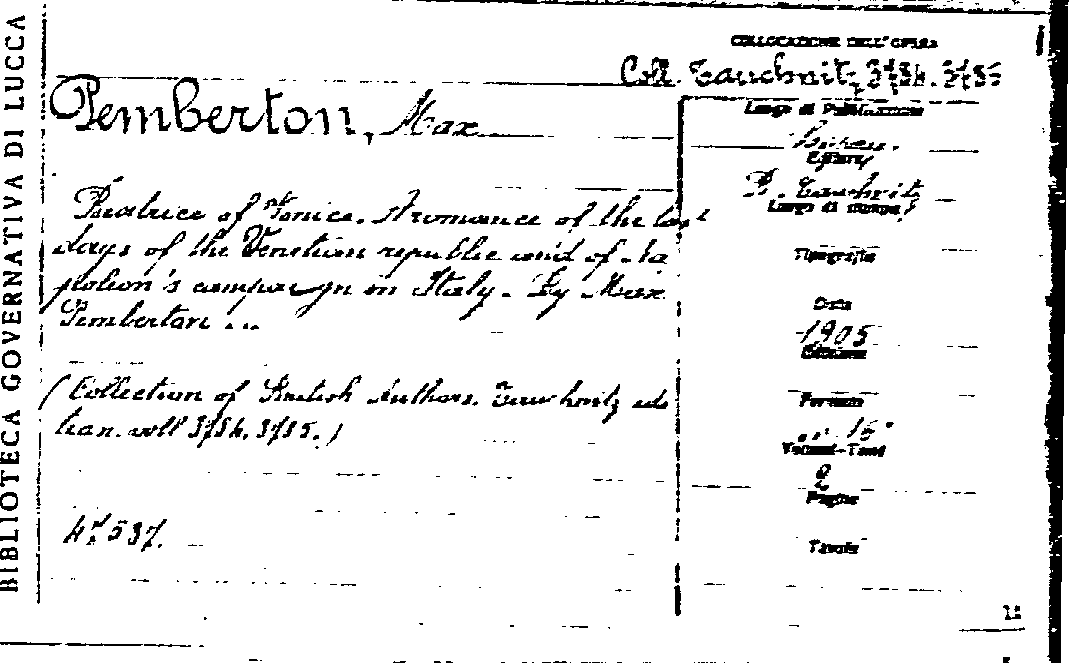 BIBLIOTECA GOVERNATIVA DI LUCCA
COLLOCAZIONE DELL'OPERA
Coll. Tauchnitz 3784. 3785
Pemberton, Max
Luogo di Pubblicazione
Editore
B. Tauchnitz
Luogo di stampa
Beatrice of Venice. A romance of the last
days of the Venetian republic and of Na
poleon's campaign in Italy. By Max
Pemberton ...
Tipografia
Data
1905
Edizione
(Collection of British Authors. Tauchnitz edi
tion. voll 3784. 3785.)
Formato
in 16°
Volumi-Tomi
2
Pagine
47537.
Tavole